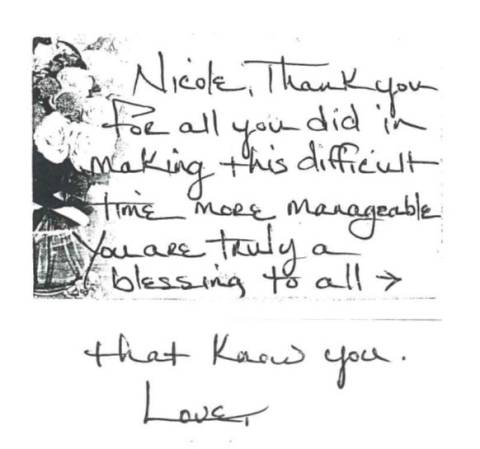 Nicole, Thank you
for all you did in
making this difficult
time more manageable
You are truly a
blessing to all →
that know you.
Love,